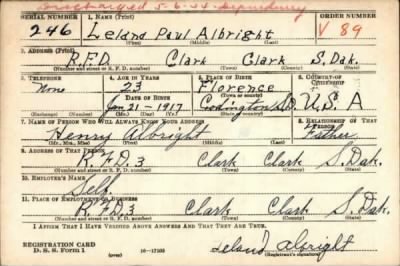 Discharged 5-6-44
SERIAL NUMBER 1. NAME (Print) ORDER NUMBER
246 Leland Paul Albright V 89
(First) (Middle) (Last)
2. ADDRESS (Print)
R.F.D. Clark Clark S. Dak.
(Number and street or R. F. D. number) (Town) (County) (State)
3. TELEPHONE 4. AGE IN YEARS 5. PLACE OF BIRTH 6. COUNTRY OF CITIZENSHIP
None 23 Florence
DATE OF BIRTH (Town or county)
Jan 21-1917 Codington S.D. U.S.A
(Exchange) (Number) (Mo.) (Day) (Yr.) (State or country)
7. NAME OF PERSON WHO WILL ALWAYS KNOW YOUR ADDRESS 8. RELATIONSHIP OF THAT PERSON
Henry Albright Father
(Mr., Mrs., Miss) (First) (Middle) (Last)
9. ADDRESS OF THAT PERSON
R.F.D. 3 Clark Clark S. Dak.
(Number and street or R. F. D. number) (Town) (County) (State)
10. EMPLOYER'S NAME
Self
11. PLACE OF EMPLOYMENT OR BUSINESS
R.F.D. 3 Clark Clark S. Dak.
(Number and street or R. F. D. number) (Town) (County) (State)
I AFFIRM THAT I HAVE VERIFIED ABOVE ANSWERS AND THAT THEY ARE TRUE.
REGISTRATION CARD
D. S. S. Form 1 (over) 16-17105 Leland Albright
(Registrant's signature)